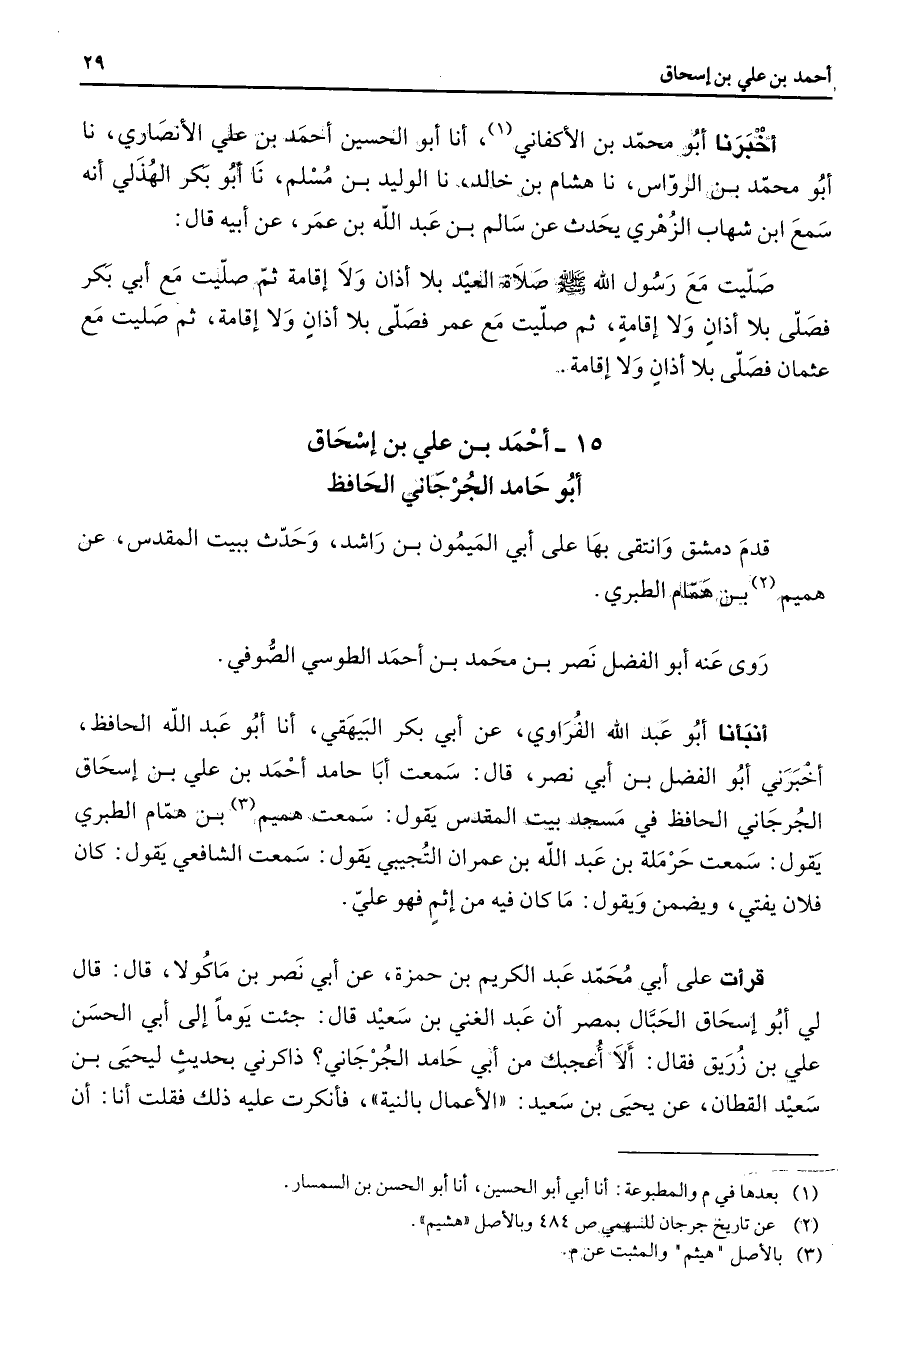 أحمد بن علي بن إسحاق
٢٩
أَخْبَرَنا أبُو محمّد بن الأكفاني(١)، أنا أبو الحسين أحمَد بن علي الأنصَاري، نا
أبُو محمّد بـن الروّاس، نا هشام بن خالد، نا الوليد بـن مُسْلم، نَا أبُو بَكر الهُذَلي أنه
سَمعَ ابن شهاب الزُهْري يحَدث عن سَالم بـن عَبد الله بن عمَر، عن أبيه قال:
صَلّيت مَعَ رَسُول الله ﷺ صَلَاة العيْد بلا أذان وَلَا إقامة ثمّ صلّيت مَع أبي بَكر
فصَلّى بلا أذانٍ وَلا إقامةٍ، ثم صلّيت مَع عمر فصَلّى بلا أذانٍ وَلا إقامة، ثم صَليت مَع
عثمان فصَلّى بلا أذانٍ وَلا إقامة.
١٥ ـ أحْمَد بـن علي بن إسْحَاق
أبُو حَامد الجُرْجَاني الحَافظ
قدمَ دمشق وَانتقى بهَا على أبي المَيمُون بـن رَاشد، وَحَدّث ببيت المقدس، عن
هميم(٢) بـن هَمّام الطبري.
رَوى عَنه أبو الفضل نَصر بـن محَمد بـن أحمَد الطوسي الصُّوفي.
أنبَأنا أبُو عَبد الله الفُرَاوي، عن أبي بكر البَيهَقي، أنا أبُو عَبد الله الحافظ،
أخْبَرَني أبُو الفضل بـن أبي نصر، قال: سَمعت أبَا حامد أحْمَد بن علي بـن إسحَاق
الجُرجَاني الحافظ في مَسجد بيت المقدس يقُول: سَمعت هميم(٣) بـن همّام الطبري
يَقول: سَمعت حَرْمَلة بن عَبد الله بن عمران التُجيبي يَقول: سَمعت الشافعي يَقول: كان
فلان يفتي، ويضمن وَيقول: مَا كان فيه من إثمٍ فهو عليّ.
قرأت على أبي مُحَمّد عَبد الكريم بن حمزة، عن أبي نَصر بن مَاكُولا، قال: قال
لي أبُو إسحَاق الحَبَّال بمصر أن عَبد الغني بن سَعيْد قال: جئت يَوماً إلى أبي الحسَن
علي بن زُرَيق فقال: أَلَا أُعجبك من أبي حَامد الجُرْجَاني؟ ذاكرني بحديثٍ ليحيَى بـن
سَعيْد القطان، عن يحيَى بن سَعيد: «الأعمال بالنية»، فأنكرت عليه ذلك فقلت أنا: أن
(١) بعدها في م والمطبوعة: أنا أبي أبو الحسين، أنا أبو الحسن بن السمسار.
(٢) عن تاريخ جرجان للسهمي ص ٤٨٤ وبالأصل «هشيم».
(٣) بالأصل "هيثم" والمثبت عن م.